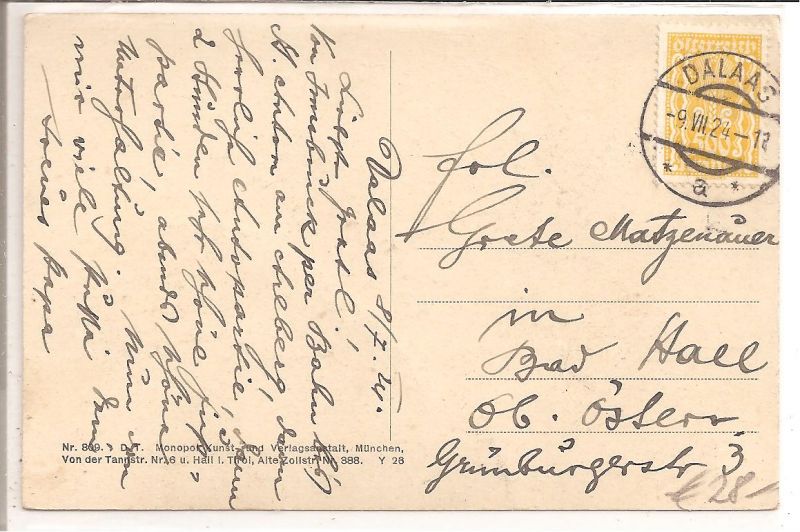 Dalaas 8/7. 24.
Liebste Gretl!
Von Innsbruck per Bahn bis
St. Anton am Arlberg dann
herrlich Autopartie, dann
2 Stunden sehr schöne
partie, abends schöne
Unterhaltung. Nun
mir viele
Papa
österreich
DALAAS
-9.VII.24-
* a *
Frl.
Grete Matzenauer
in
Bad Hall
Ob. Österr.
Grünburgerstr. 3
Nr. 809. D. T. Monopol Kunst- und Verlagsanstalt, München,
Von der Tannstr. Nr. 6 u. Hall i. Tirol, Alte Zollstr. Nr. 388. Y 26
€ 28-